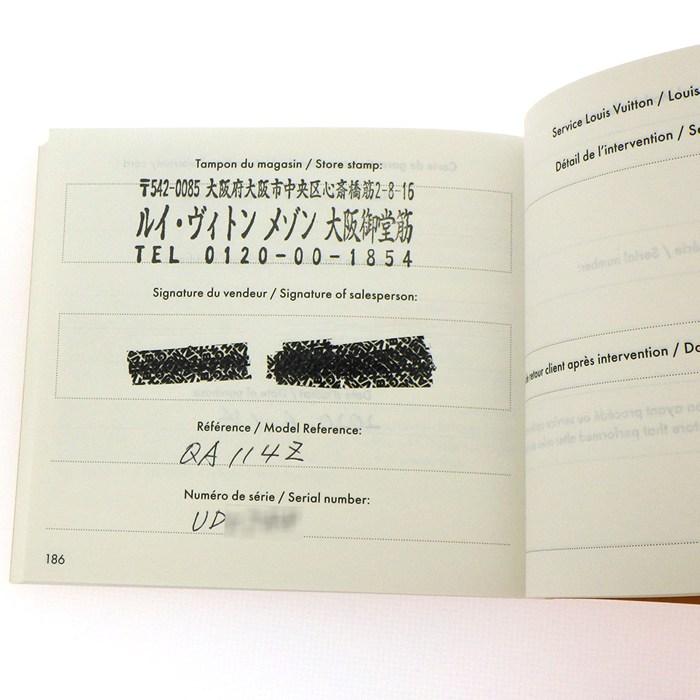 Tampon du magasin / Store stamp:
〒542-0085 大阪府大阪市中央区心斎橋筋2-8-16
ルイ・ヴィトン メゾン 大阪御堂筋
TEL 0120-00-1854
Signature du vendeur / Signature of salesperson:
Référence / Model Reference:
QA114Z
Numéro de série / Serial number:
UD
186
Service Louis Vuitton / Louis
Détail de l'intervention / Se
retour client après intervention / Da